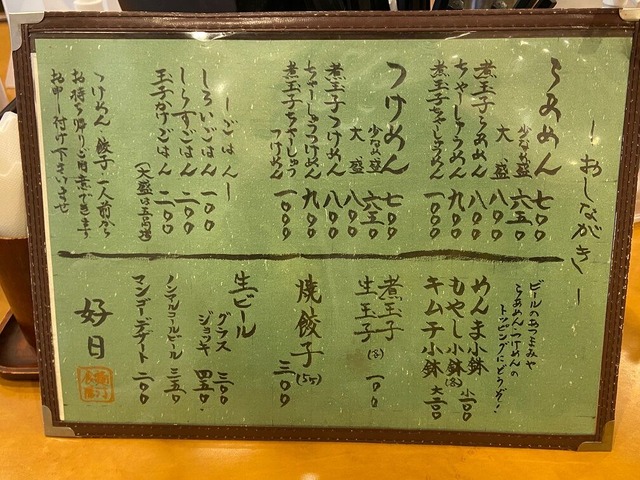 ーおしながきー
らあめん 七〇〇
少なめ盛 六五〇
大盛 八〇〇
煮玉子らあめん 八〇〇
ちゃーしゅうめん 九〇〇
煮玉子ちゃーしゅうめん 一〇〇〇
つけめん 七〇〇
少なめ盛 六五〇
大盛 八〇〇
煮玉子つけめん 八〇〇
ちゃーしゅうつけめん 九〇〇
煮玉子ちゃーしゅうつけめん 一〇〇〇
ーごはんー
しろいごはん 一〇〇
しらすごはん 二〇〇
玉子かけごはん 二〇〇
(大盛は五十円増)
つけめん、餃子 一人前から
お持ち帰りご用意できます
お申し付け下さいませ
ビールのおつまみや
らあめん、つけめんの
トッピングにどうぞ!
めんま小鉢
もやし小鉢(各) 小一〇〇
キムチ小鉢 大二〇〇
煮玉子
生玉子(各) 一〇〇
焼餃子(5ヶ) 三〇〇
生ビール
グラス 三〇〇
ジョッキ 四五〇
ノンアルコールビール 三五〇
マンゴーデザート 二〇〇
好日